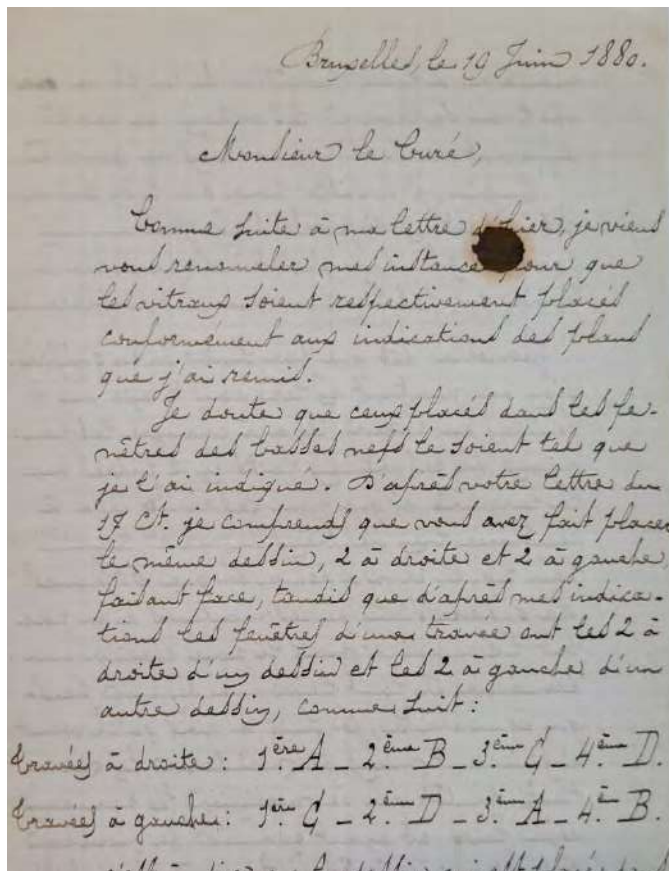 Bruxelles, le 19 Juin 1880.
Monsieur le Curé,
Comme suite à ma lettre d'hier, je viens
vous renouveler mes instances pour que
les vitraux soient respectivement placés
conformément aux indications des plans
que j'ai remis.
Je doute que ceux placés dans les fe-
nêtres des basses nefs le soient tel que
je l'ai indiqué. D'après votre lettre du
17 Ct. je comprends que vous avez fait placer
le même dessin, 2 à droite et 2 à gauche,
faisant face, tandis que d'après mes indica-
tions les fenêtres d'une travée ont les 2 à
droite d'un dessin et les 2 à gauche d'un
autre dessin, comme suit :
Travées à droite : 1ère A _ 2ème B _ 3ème C _ 4ème D.
Travées à gauche : 1ère C _ 2ème D _ 3ème A _ 4è. B.